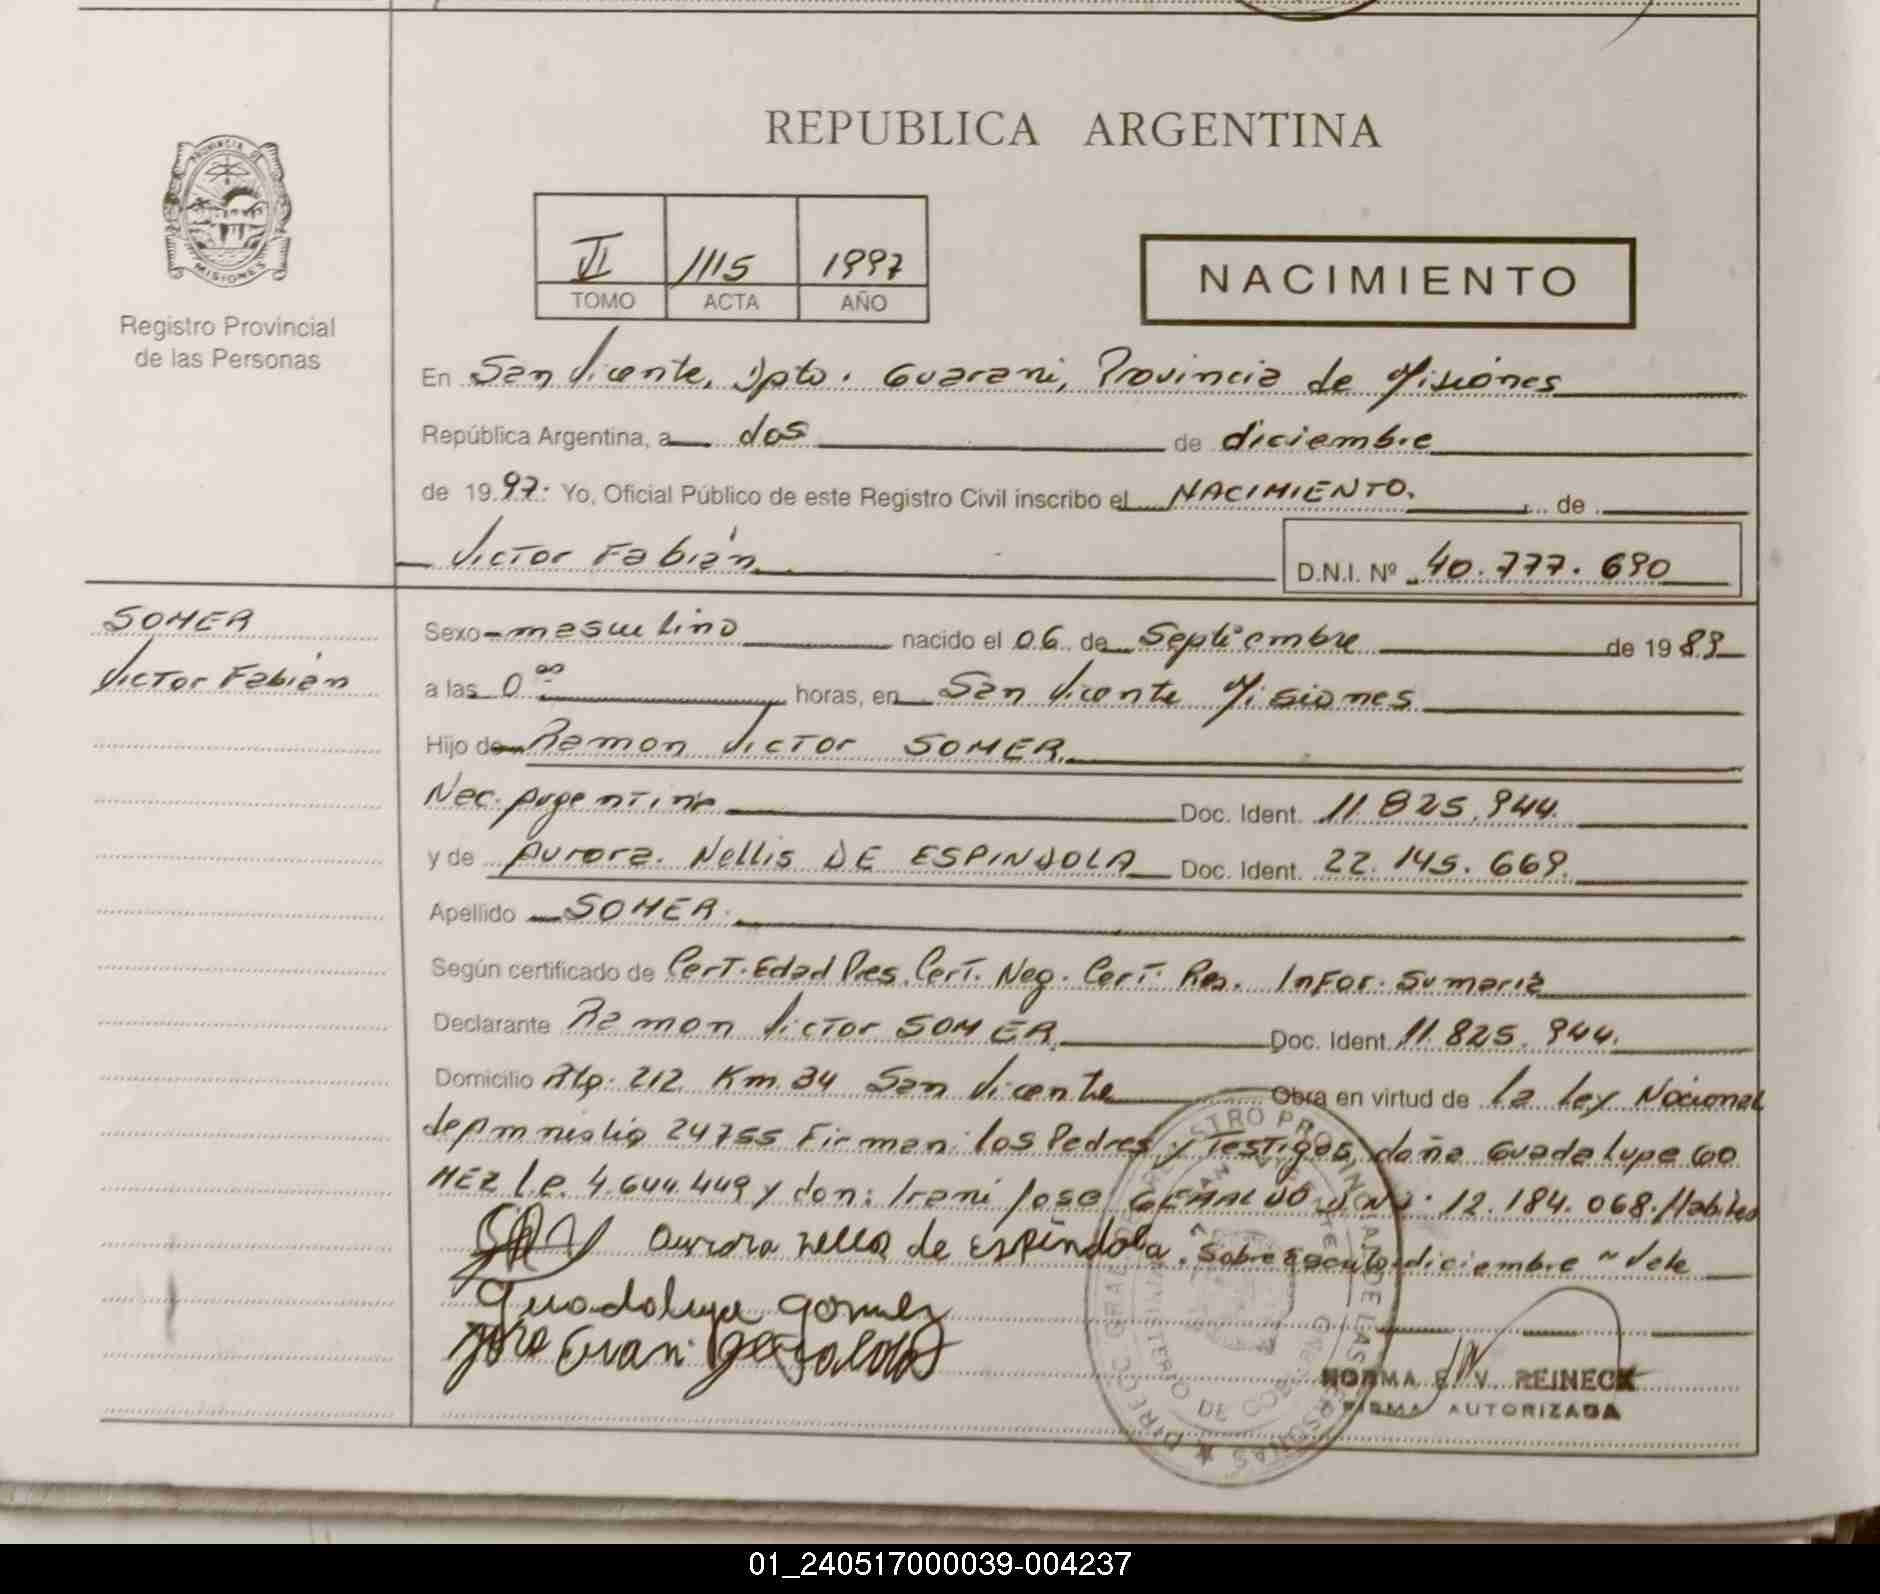 REPUBLICA ARGENTINA
PROVINCIA DE
MISIONES
Registro Provincial
de las Personas
VI 1115 1997
TOMO ACTA AÑO
NACIMIENTO
En San Vicente, Dpto. Guarani, Provincia de Misiones
República Argentina, a dos de diciembre
de 1997. Yo, Oficial Público de este Registro Civil inscribo el NACIMIENTO. de
Victor Fabián D.N.I. Nº 40.777.690
SOMER
Victor Fabián
Sexo masculino nacido el 06 de Septiembre de 1989
a las 0 00 horas, en San Vicente Misiones
Hijo de Ramon Victor SOMER.
Nac. Argentina Doc. Ident. 11.825.944.
y de Aurora. Nellis DE ESPINDOLA Doc. Ident. 22.145.669.
Apellido SOMER.
Según certificado de Cert. Edad Pres. Cert. Neg. Cert. Res. Infor. Sumaria
Declarante Ramon Victor SOMER. Doc. Ident. 11.825.944.
Domicilio Rta. 212 Km. 34 San Vicente Obra en virtud de la Ley Nacional
de Amnistia 24755 Firman: los Padres y Testigos doña Guadalupe GO
MEZ L.e. 4.644.449 y don: Irani Jose GERALDO DNI. 12.184.068. Habiles
Aurora nellis de Espíndola. Sobre diciembre " Vale
Guadalupe gomez
NORMA E. V. REINECK
FIRMA AUTORIZADA
DIREC. GRAL. DE REGISTRO PROVINCIAL DE LAS PERSONAS
MINISTERIO DE GOBIERNO
SAN VICENTE
01_240517000039-004237